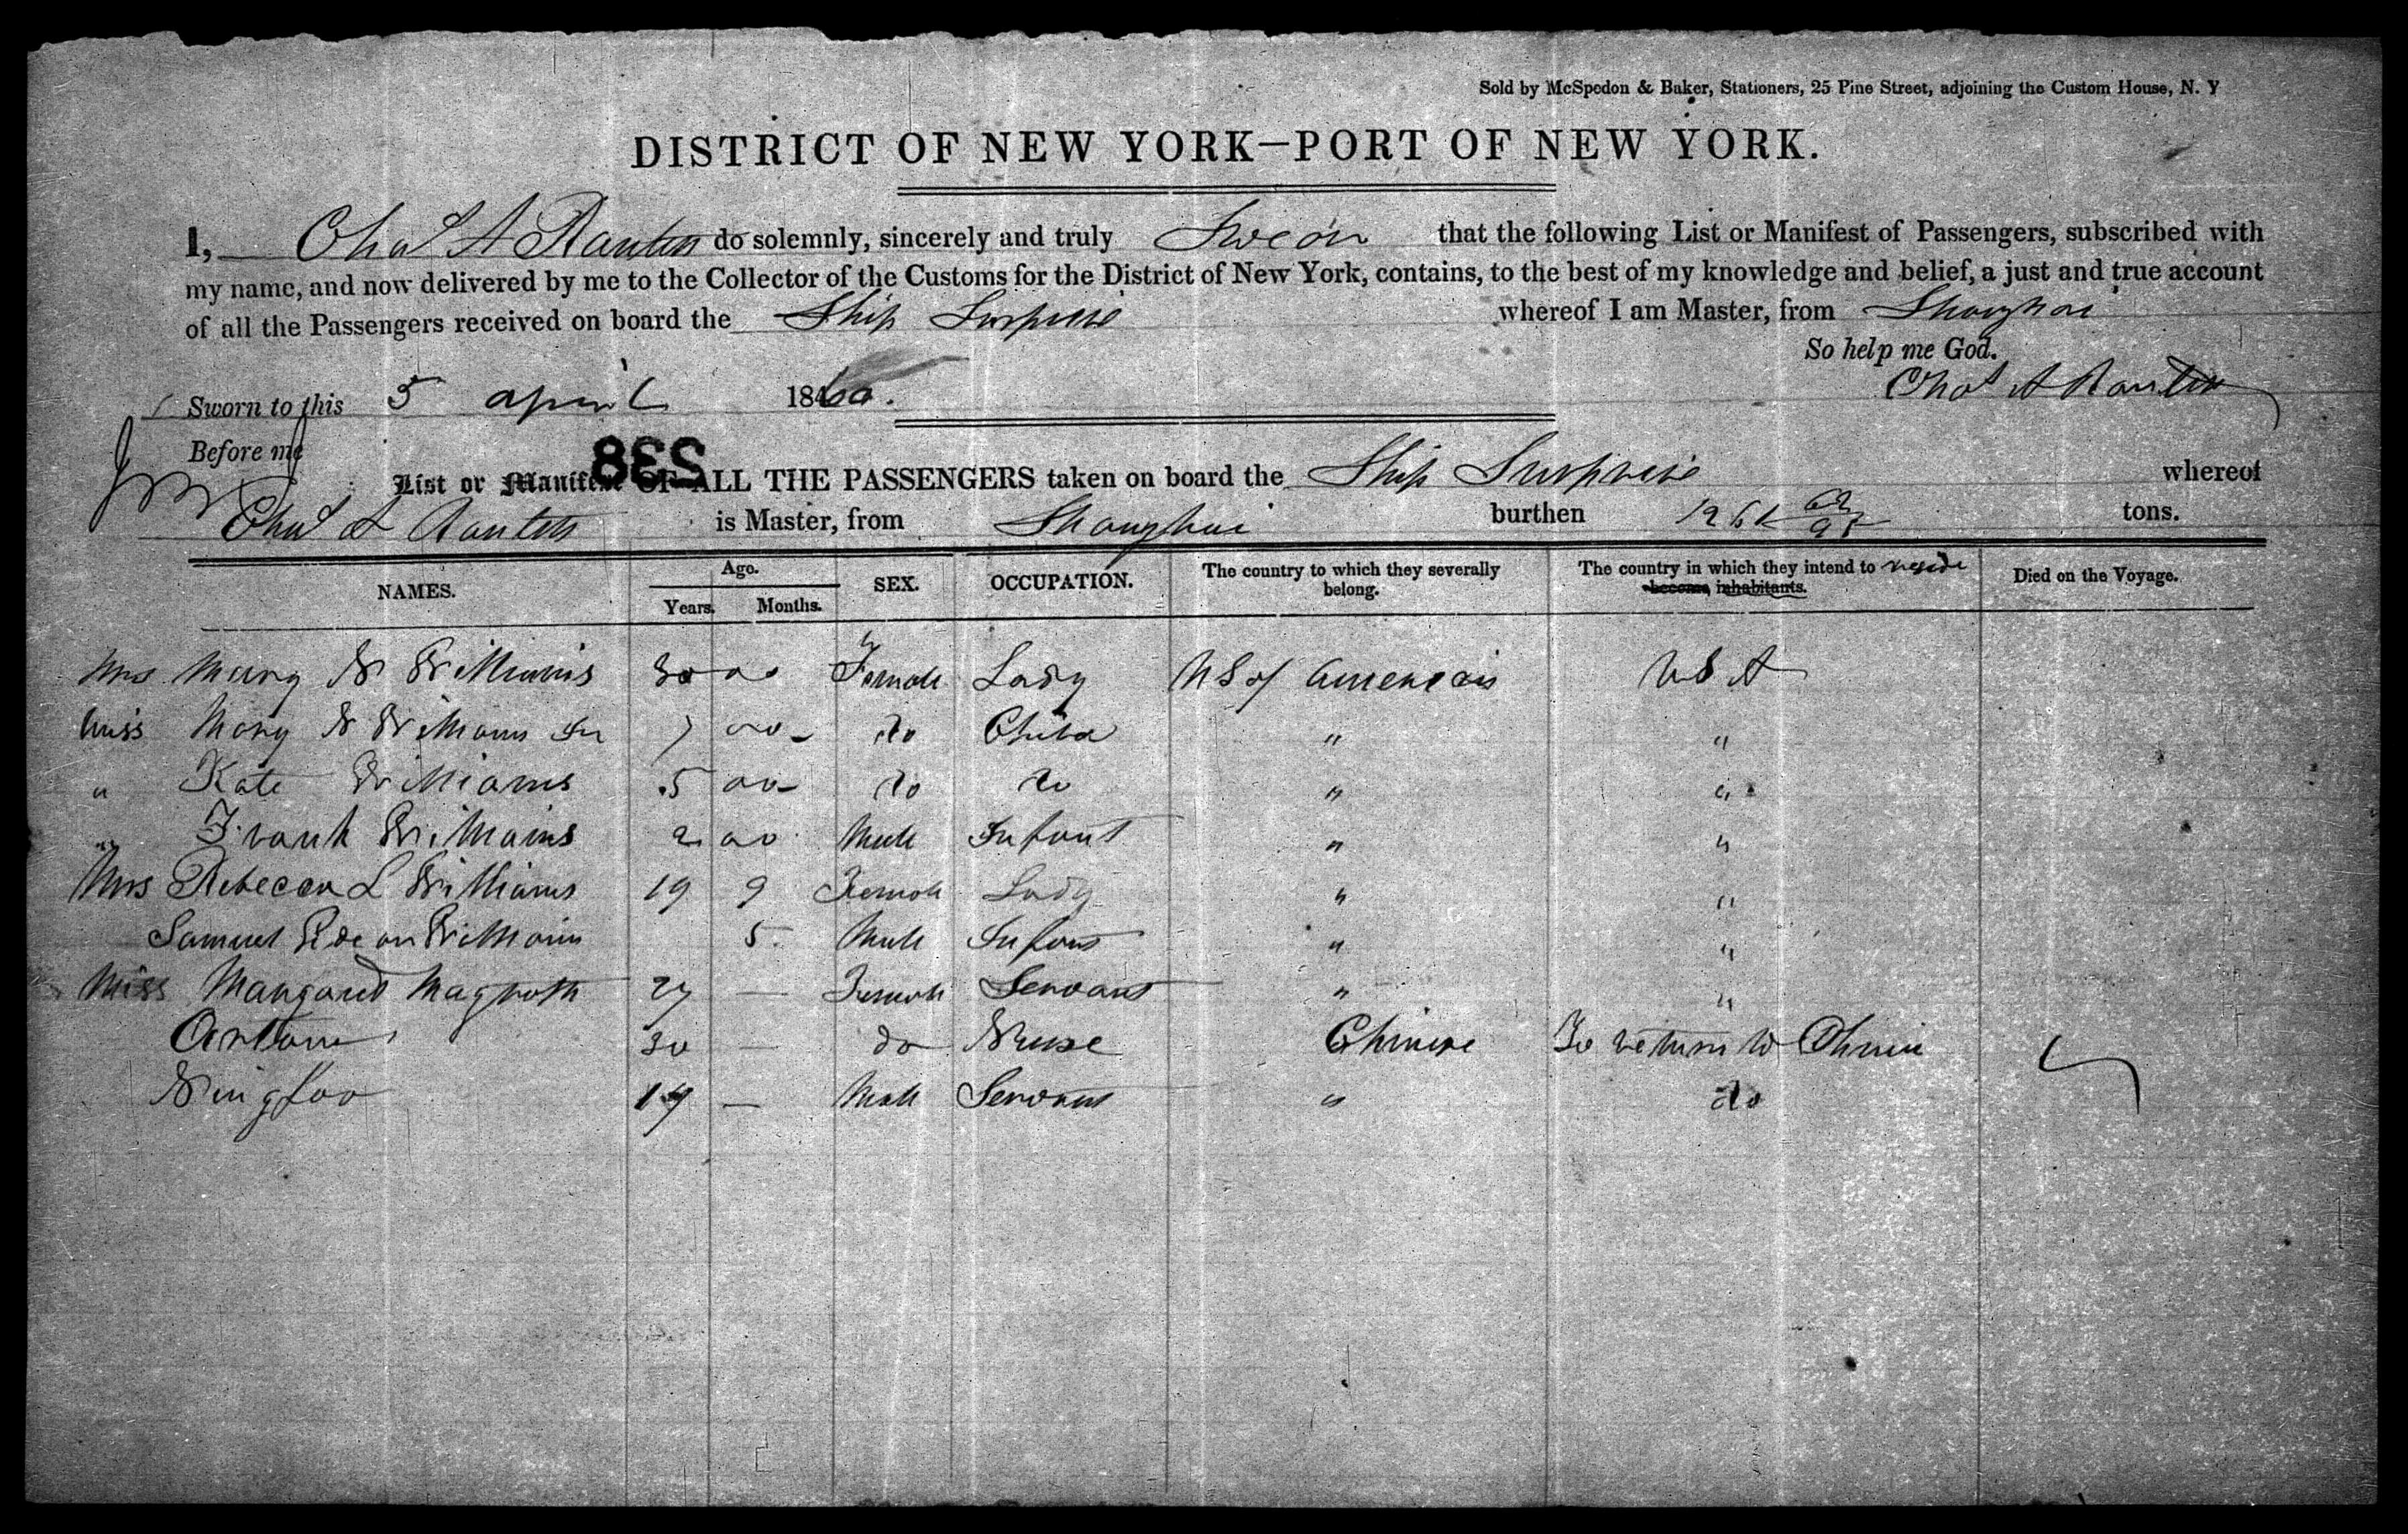 Sold by McSpedon & Baker, Stationers, 25 Pine Street, adjoining the Custom House, N. Y
DISTRICT OF NEW YORK—PORT OF NEW YORK.
I, Chas A Ranlett do solemnly, sincerely and truly Swear that the following List or Manifest of Passengers, subscribed with
my name, and now delivered by me to the Collector of the Customs for the District of New York, contains, to the best of my knowledge and belief, a just and true account
of all the Passengers received on board the Ship Surprise whereof I am Master, from Shanghai
So help me God.
Sworn to this 5 april 1860. Chas A Ranlett
Before me
238
List or Manifest OF ALL THE PASSENGERS taken on board the Ship Surprise whereof
Chas A Ranlett is Master, from Shanghai burthen 1261 62/95 tons.
NAMES. Age. Years. Months. SEX. OCCUPATION. The country to which they severally belong. The country in which they intend to reside become inhabitants. Died on the Voyage.
Mrs Mary Williams 30 00 Female Lady US of America US A
Miss Mary Williams Jr 7 00 do Child " "
" Kate Williams 5 00 do do " "
" Frank Williams 2 00 Male Infant " "
Mrs Rebecca L Williams 19 9 Female Lady " "
Samuel Williams 5 Male Infant " "
Miss Margaret Magroth 27 — Female Servant " "
30 — do Nurse Chinese To return to China
19 — Male Servant " do